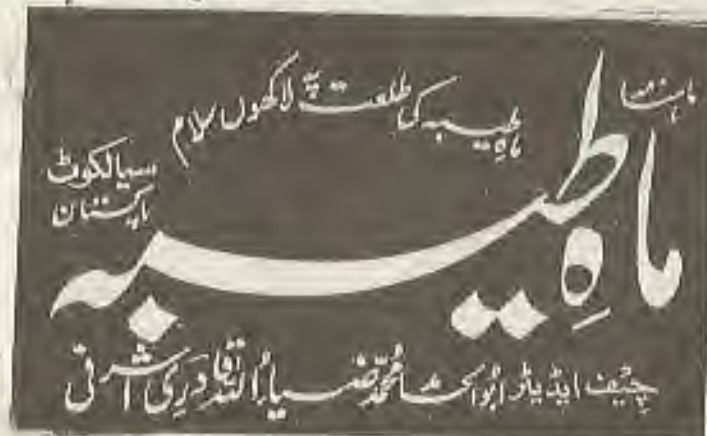 ماہنامہ
ماہِ طیبہ کی طلعت پہ لاکھوں سلام
سیالکوٹ
پاکستان
ماہِ طیبہ
چیف ایڈیٹر ابوالحامد محمد ضیاء اللہ قادری اشرفی